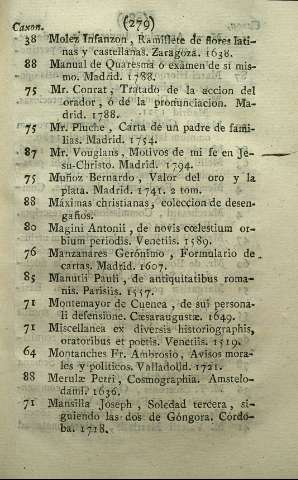 Caxon. (279)
38 Molez Infanzon, Ramillete de flores lati-
nas y castellanas. Zaragoza. 1638.
88 Manual de Quaresma ó exâmen de sí mis-
mo. Madrid. 1788.
75 Mr. Conrat, Tratado de la accion del
orador, ó de la pronunciacion. Ma-
drid. 1788.
75 Mr. Pluche, Carta de un padre de fami-
lias. Madrid. 1754.
87 Mr. Vouglans, Motivos de mi fe en Je-
su-Christo. Madrid. 1794.
75 Muñoz Bernardo, Valor del oro y la
plata. Madrid. 1741. 2 tom.
88 Máximas christianas, coleccion de desen-
gaños.
80 Magini Antonii, de novis cœlestium or-
bium periodis. Venetiis. 1589.
76 Manzanares Gerónimo, Formulario de
cartas. Madrid. 1607.
85 Manutii Pauli, de antiquitatibus roma-
nis. Parisiis. 1557.
71 Montemayor de Cuenca, de sui persona-
li defensione. Cæsaraugustæ. 1649.
71 Miscellanea ex diversis historiographis,
oratoribus et poetis. Venetiis. 1519.
64 Montanches Fr. Ambrosio, Avisos mora-
les y políticos. Valladolid. 1721.
88 Merulæ Petri, Cosmographia. Amstelo-
dami. 1636.
71 Mansilla Joseph, Soledad tercera, si-
guiendo las dos de Góngora. Córdo-
ba. 1718.